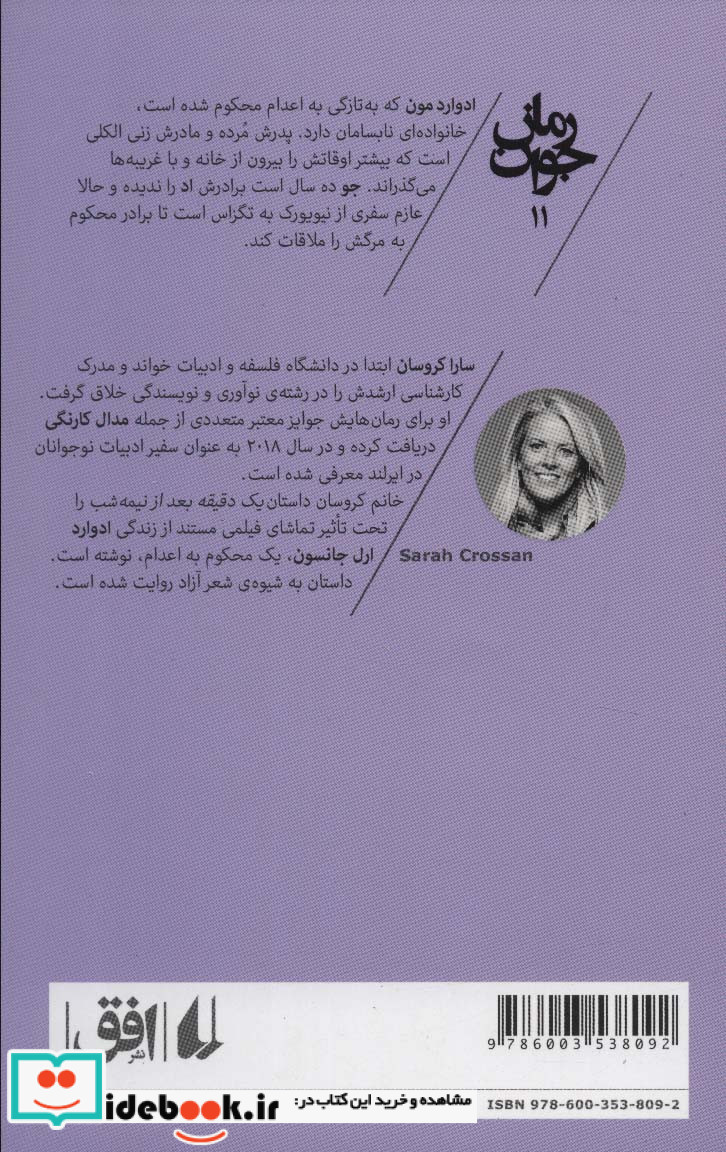 رمان
جوان
۱۱
ادوارد مون که به‌تازگی به اعدام محکوم شده است،
خانواده‌ای نابسامان دارد. پدرش مُرده و مادرش زنی الکلی
است که بیشتر اوقاتش را بیرون از خانه و با غریبه‌ها
می‌گذراند. جو ده سال است برادرش اد را ندیده و حالا
عازم سفری از نیویورک به تگزاس است تا برادر محکوم
به مرگش را ملاقات کند.
سارا کروسان ابتدا در دانشگاه فلسفه و ادبیات خواند و مدرک
کارشناسی ارشدش را در رشته‌ی نوآوری و نویسندگی خلاق گرفت.
او برای رمان‌هایش جوایز معتبر متعددی از جمله مدال کارنگی
دریافت کرده و در سال ۲۰۱۸ به عنوان سفیر ادبیات نوجوانان
در ایرلند معرفی شده است.
خانم کروسان داستان یک دقیقه بعد از نیمه‌شب را
تحت تأثیر تماشای فیلمی مستند از زندگی ادوارد
ارل جانسون، یک محکوم به اعدام، نوشته است.
داستان به شیوه‌ی شعر آزاد روایت شده است.
Sarah Crossan
نشر افق
9 786003 538092
ISBN 978-600-353-809-2
مشاهده و خرید این کتاب در:
idebook.ir